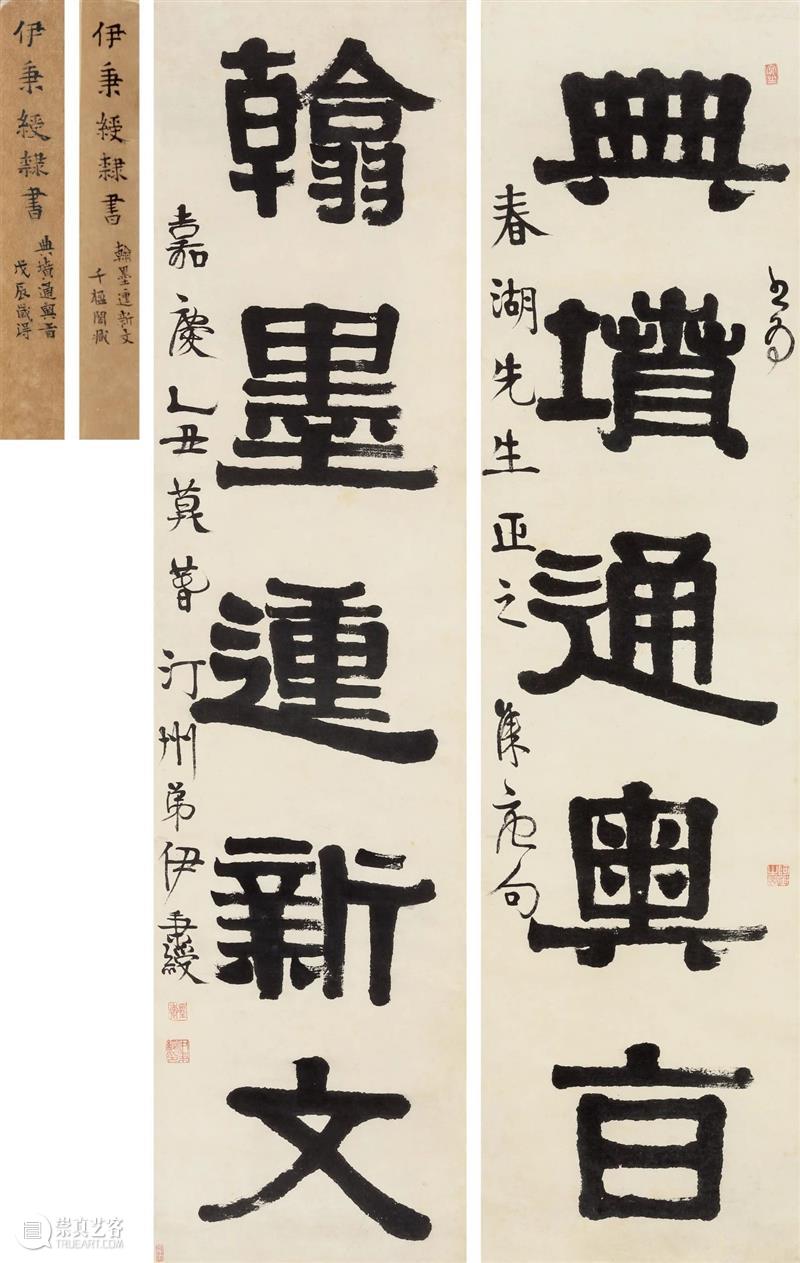 典墳通奧旨
書為
春湖先生正之 集句
翰墨運新文
嘉慶乙丑莫萅汀州弟伊秉綬
伊秉綬隸書
翰墨運新文
千榲閣藏
伊秉綬隸書
典墳通奧旨
戊辰歲得
崇真艺客